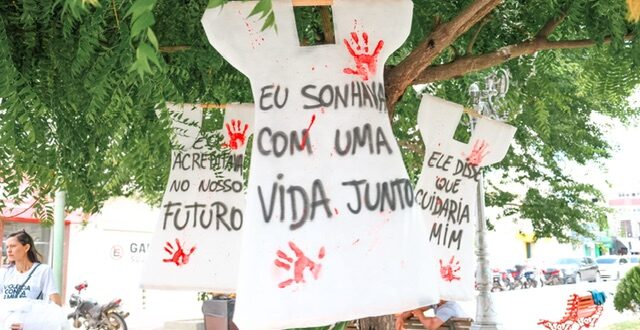 EU SONHAVA
COM UMA
VIDA JUNTO
ACREDITAVA
NO NOSSO
FUTURO
ELE DISSE
QUE
CUIDARIA
MIM